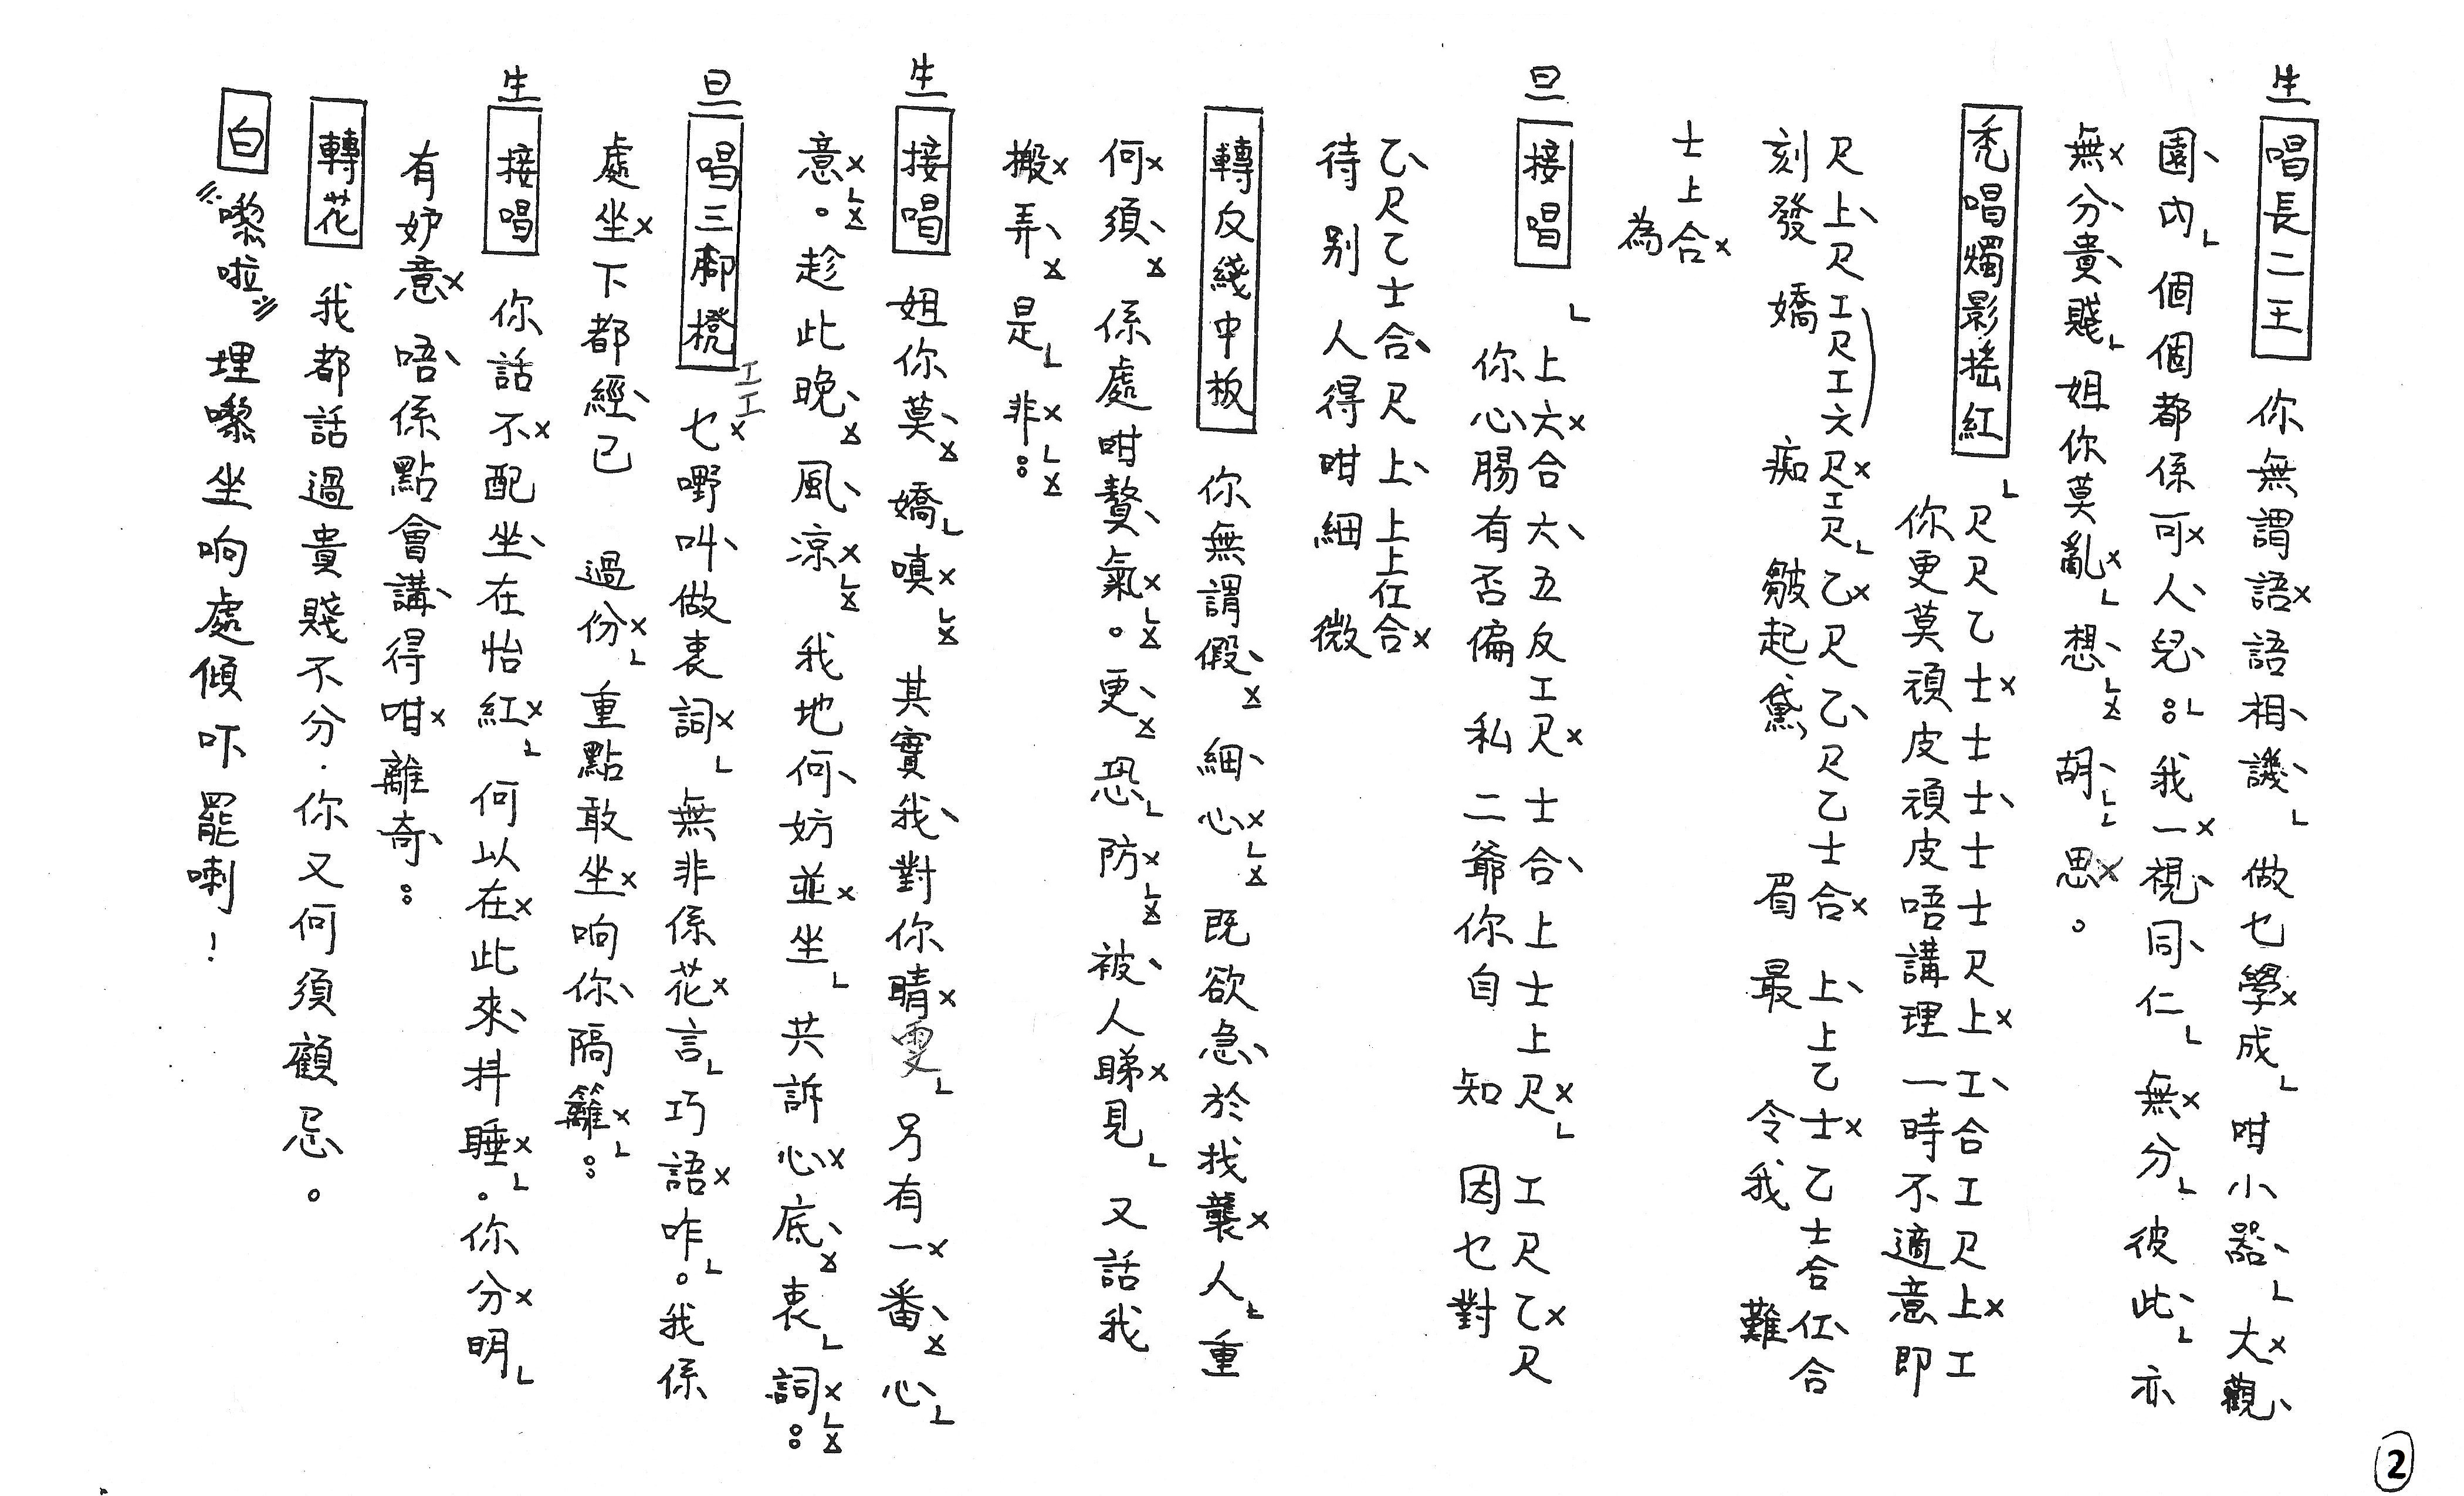 生 唱長二王 你無謂語語相譏 做乜學成 咁小器 大觀
園內 個個都係可人兒：我一視同仁 無分 彼此 亦
無分貴賤 姐你莫亂 想 胡 思。
禿唱燭影搖紅 尺尺乙士士士士士尺上 工合工尺上工
你更莫頑皮頑皮唔講理 一時不適意即
尺上尺工尺工六尺工尺 乙尺乙尺乙士合 上上乙士乙士合仜合
刻發 嬌 痴 皺起黛 眉 最 令我 難
士上合
為
旦 接唱 上六合六五反工尺 士合上士上尺 工尺乙尺
你心腸有否偏 私 二爺你自 知 因乜對
乙尺乙士合尺上上上仜合
待別人得咁細 微
轉反綫中板 你無謂假 細心 既欲急於找襲人 重
何須 係處咁贅氣。更恐防 被人睇見 又話我
搬弄是 非：
生 接唱 姐你莫嬌嗔 其實我對你晴雯 另有一番心
意。趁此晚 風涼 我地何妨並坐 共訴心底衷 詞：
旦 唱三腳櫈 工工 乜嘢叫做衷詞 無非係花言巧語咋。我係
處坐下都經已 過份 重點敢坐响你隔籬：
生 接唱 你話不配坐在怡紅 何以在此來抖睡。你分明
有妒意 唔係點會講得咁離奇：
轉花 我都話過貴賤不分．你又何須顧忌。
白 〝嚟啦〞埋嚟坐响處傾吓罷喇！
2